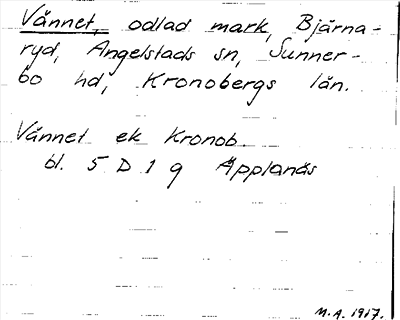 Vännet, odlad mark, Bjärna-
ryd, Angelstads sn, Sunner-
bo hd, Kronobergs län.
Vännet ek Kronob.
bl. 5 D 1 g Äpplanäs
M.A. 1917.